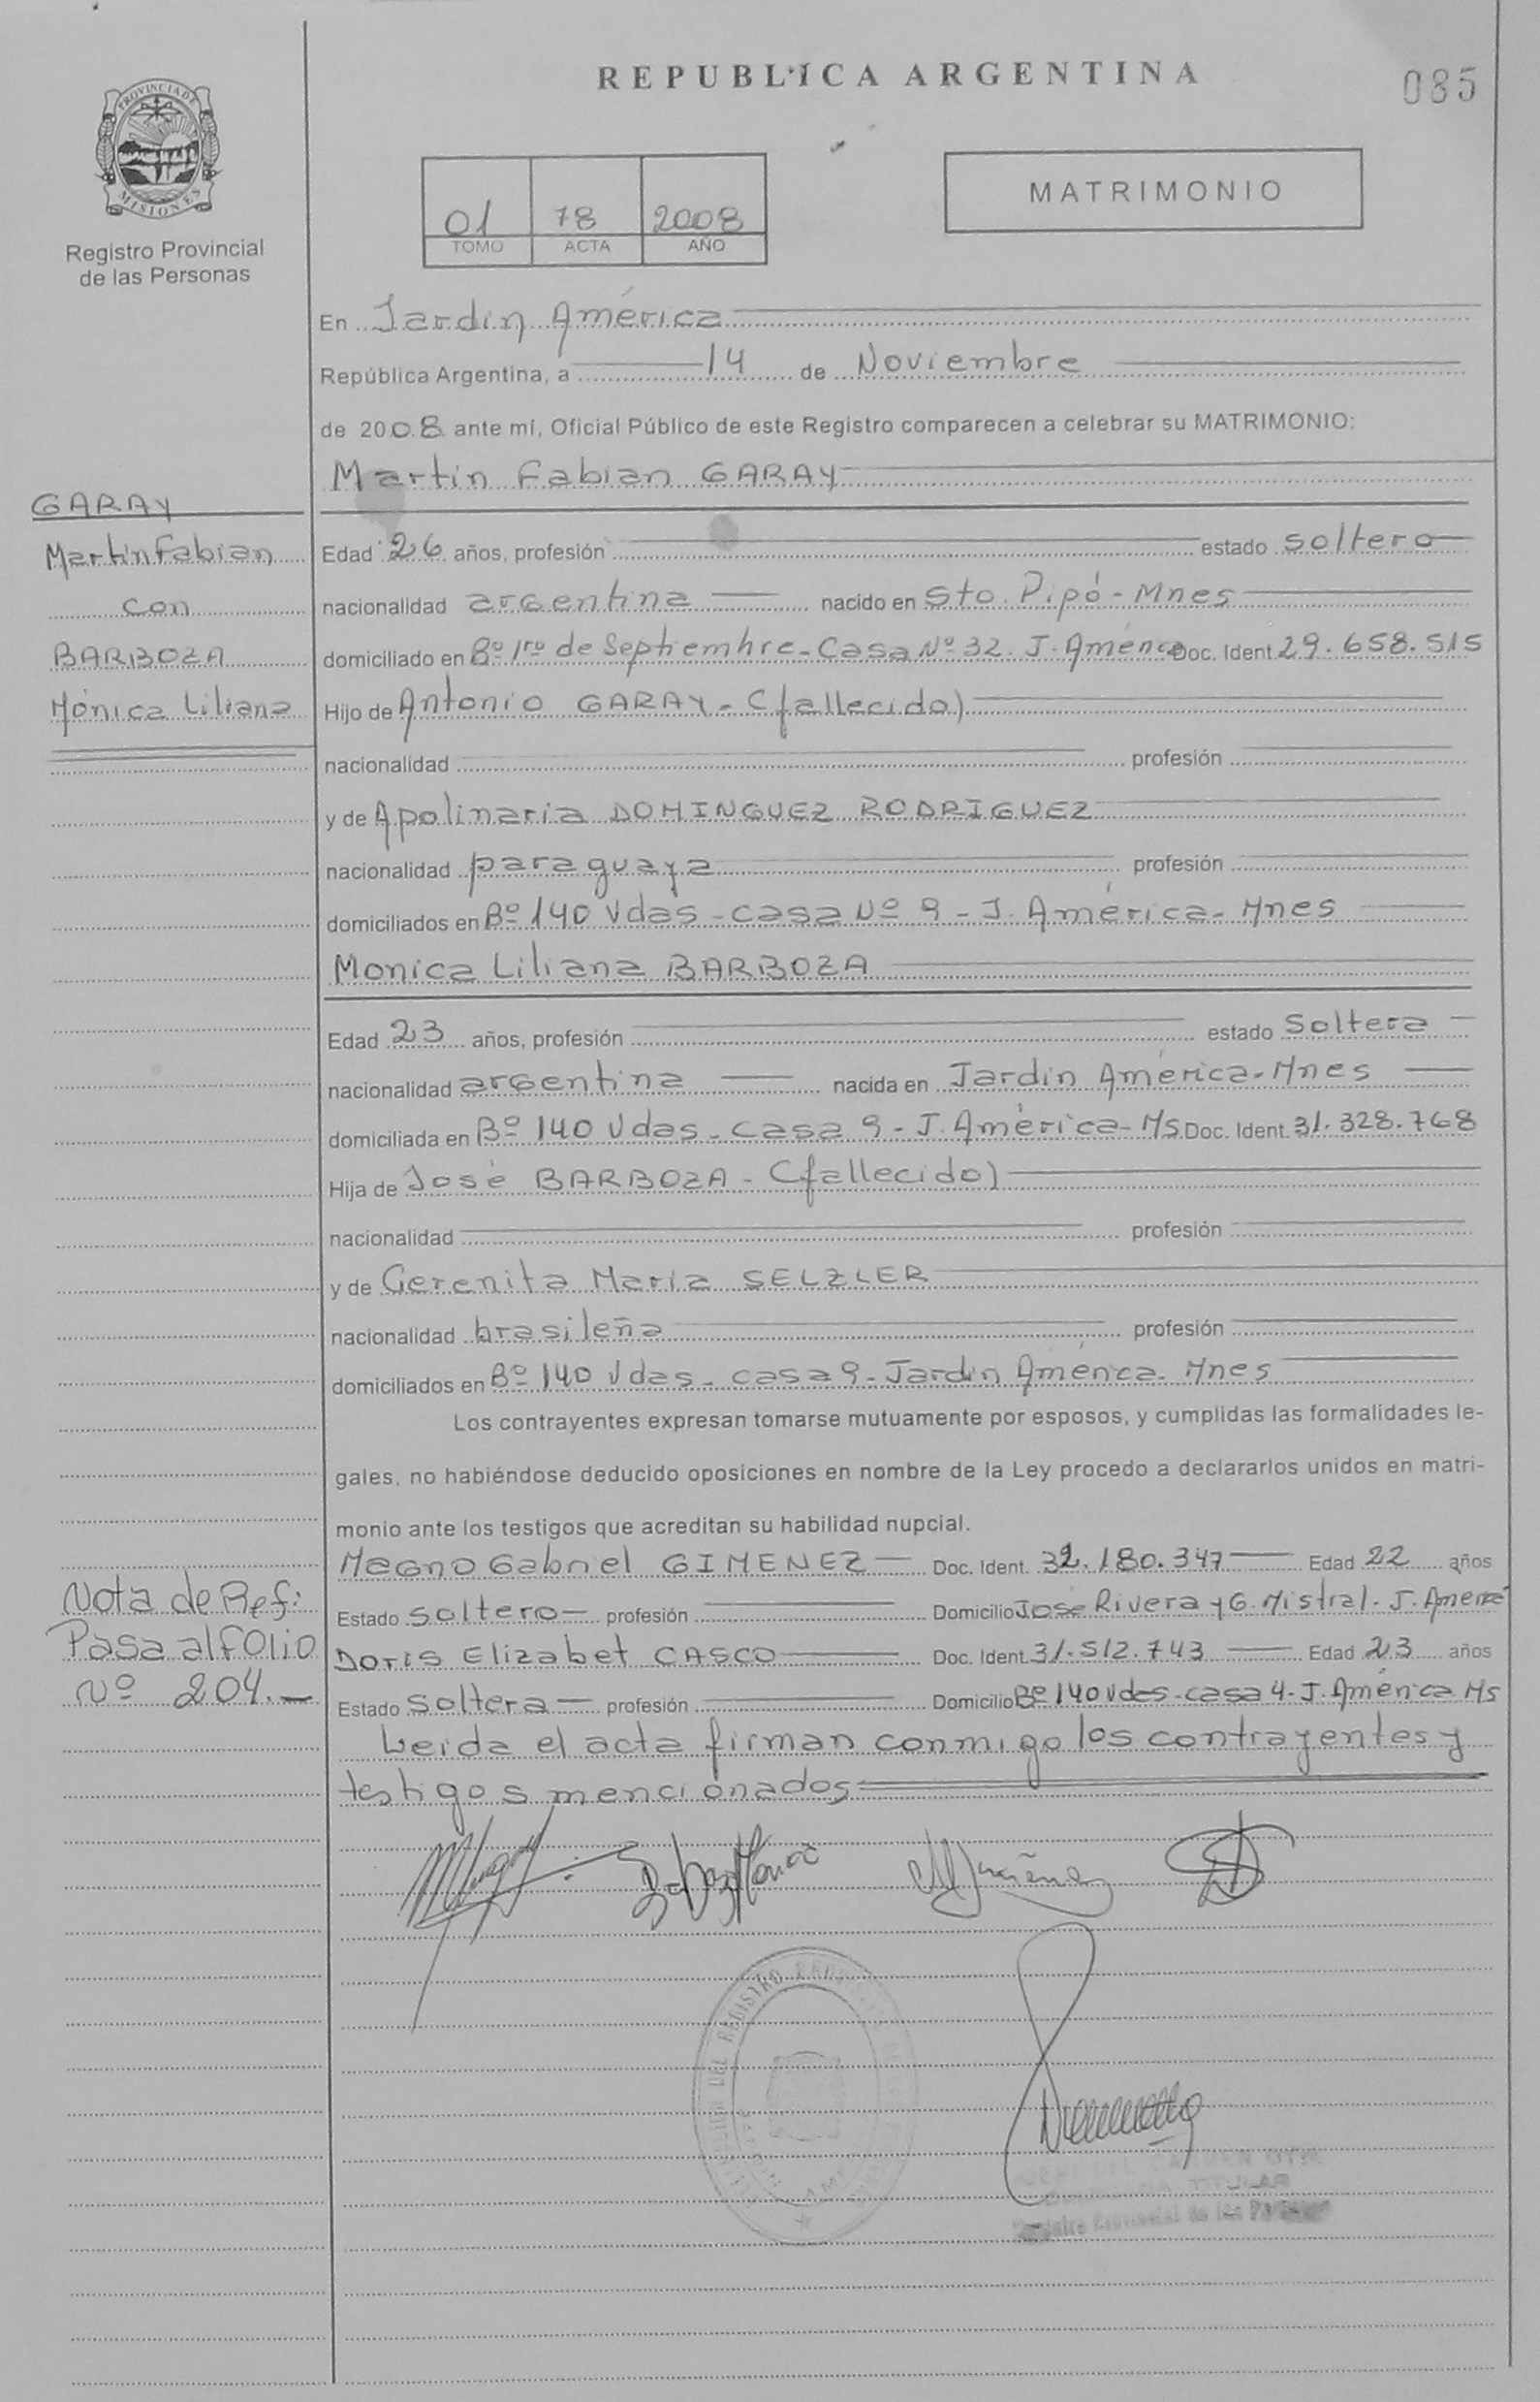 REPUBLICA ARGENTINA
085
PROVINCIA DE
MISIONES
Registro Provincial
de las Personas
01 78 2008
TOMO ACTA AÑO
MATRIMONIO
En Jardín América
República Argentina, a 14 de Noviembre
de 2008 ante mí, Oficial Público de este Registro comparecen a celebrar su MATRIMONIO:
Martín Fabian GARAY
GARAY
Martín Fabian
con
BARBOZA
Mónica Liliana
Edad 26 años, profesión estado soltero
nacionalidad argentina nacido en Sto. Pipó - Mnes
domiciliado en Bº 1ro de Septiembre - Casa Nº 32. J. América Doc. Ident 29.658.515
Hijo de Antonio GARAY - (fallecido)
nacionalidad profesión
y de Apolinaria DOMINGUEZ RODRIGUEZ
nacionalidad paraguaya profesión
domiciliados en Bº 140 Vdas - casa Nº 9 - J. América - Mnes
Monica Liliana BARBOZA
Edad 23 años, profesión estado Soltera
nacionalidad argentina nacida en Jardín América - Mnes
domiciliada en Bº 140 Vdas - casa 9 - J. América - Ms Doc. Ident. 31.328.768
Hija de José BARBOZA - (fallecido)
nacionalidad profesión
y de Gerenita María SELZLER
nacionalidad brasileña profesión
domiciliados en Bº 140 Vdas - casa 9 - Jardín América - Mnes
Los contrayentes expresan tomarse mutuamente por esposos, y cumplidas las formalidades le-
gales, no habiéndose deducido oposiciones en nombre de la Ley procedo a declararlos unidos en matri-
monio ante los testigos que acreditan su habilidad nupcial.
Magno Gabriel GIMENEZ Doc. Ident. 32.180.347 Edad 22 años
Estado soltero profesión Domicilio José Rivera y G. Mistral - J. América
Doris Elizabet CASCO Doc. Ident. 31.512.743 Edad 23 años
Estado soltera profesión Domicilio Bº 140 Vdas - casa 4 - J. América Ms
Nota de Ref:
Pasa al Folio
Nº 204.-
Leída el acta firman conmigo los contrayentes y
testigos mencionados
DEL REGISTRO
TITULAR
Registro Provincial de las Personas